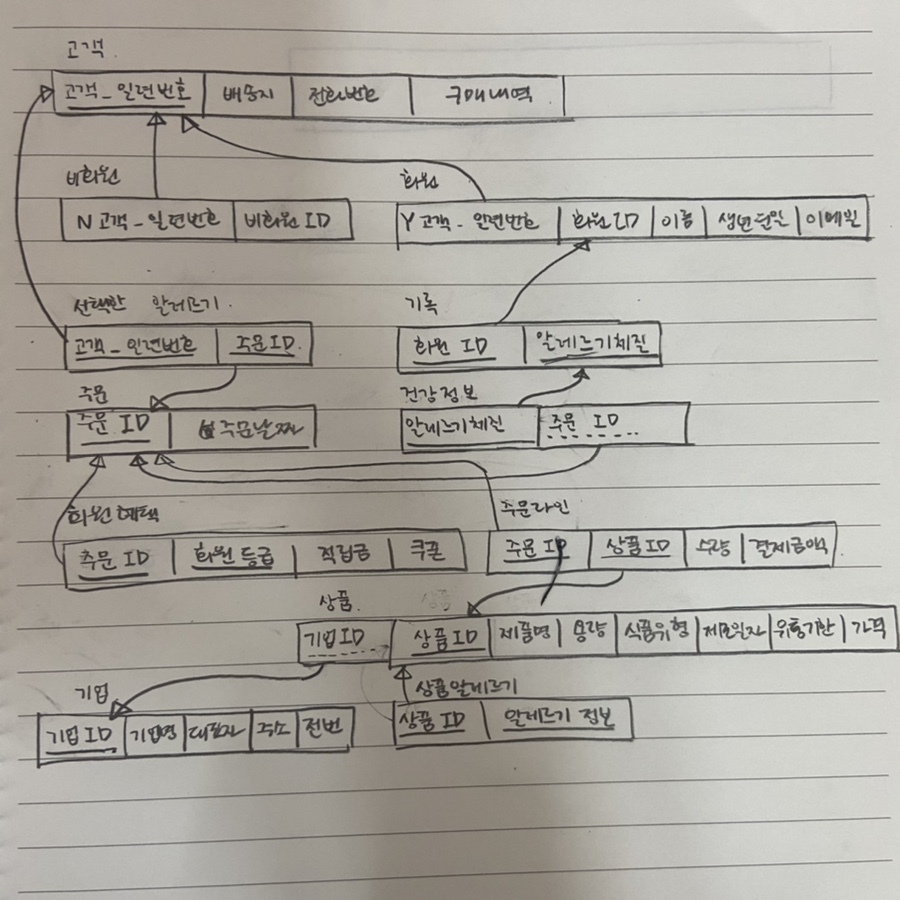 고객.
고객_일련번호 배송지 전화번호 구매내역
비회원 회원
N고객_일련번호 비회원ID Y고객_일련번호 회원ID 이름 생년월일 이메일
선택한 알레르기. 기록
고객_일련번호 주문ID. 회원 ID 알레르기체질
주문 건강정보
주문 ID 주문날짜 알레르기체질 주문 ID
회원혜택 주문라인
주문 ID 회원등급 적립금 쿠폰 주문 ID 상품ID 수량 결제금액
상품. 상품
기업ID 상품ID 제품명 용량 식품유형 제조일자 유통기한 가격
기업 상품알레르기
기업ID 기업명 대표자 주소 전번 상품ID 알레르기 정보